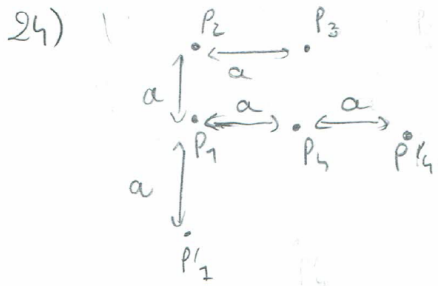 24)
P₂ P₃
a
a
a a
P₁ P₄ P'₄
a
P'₁